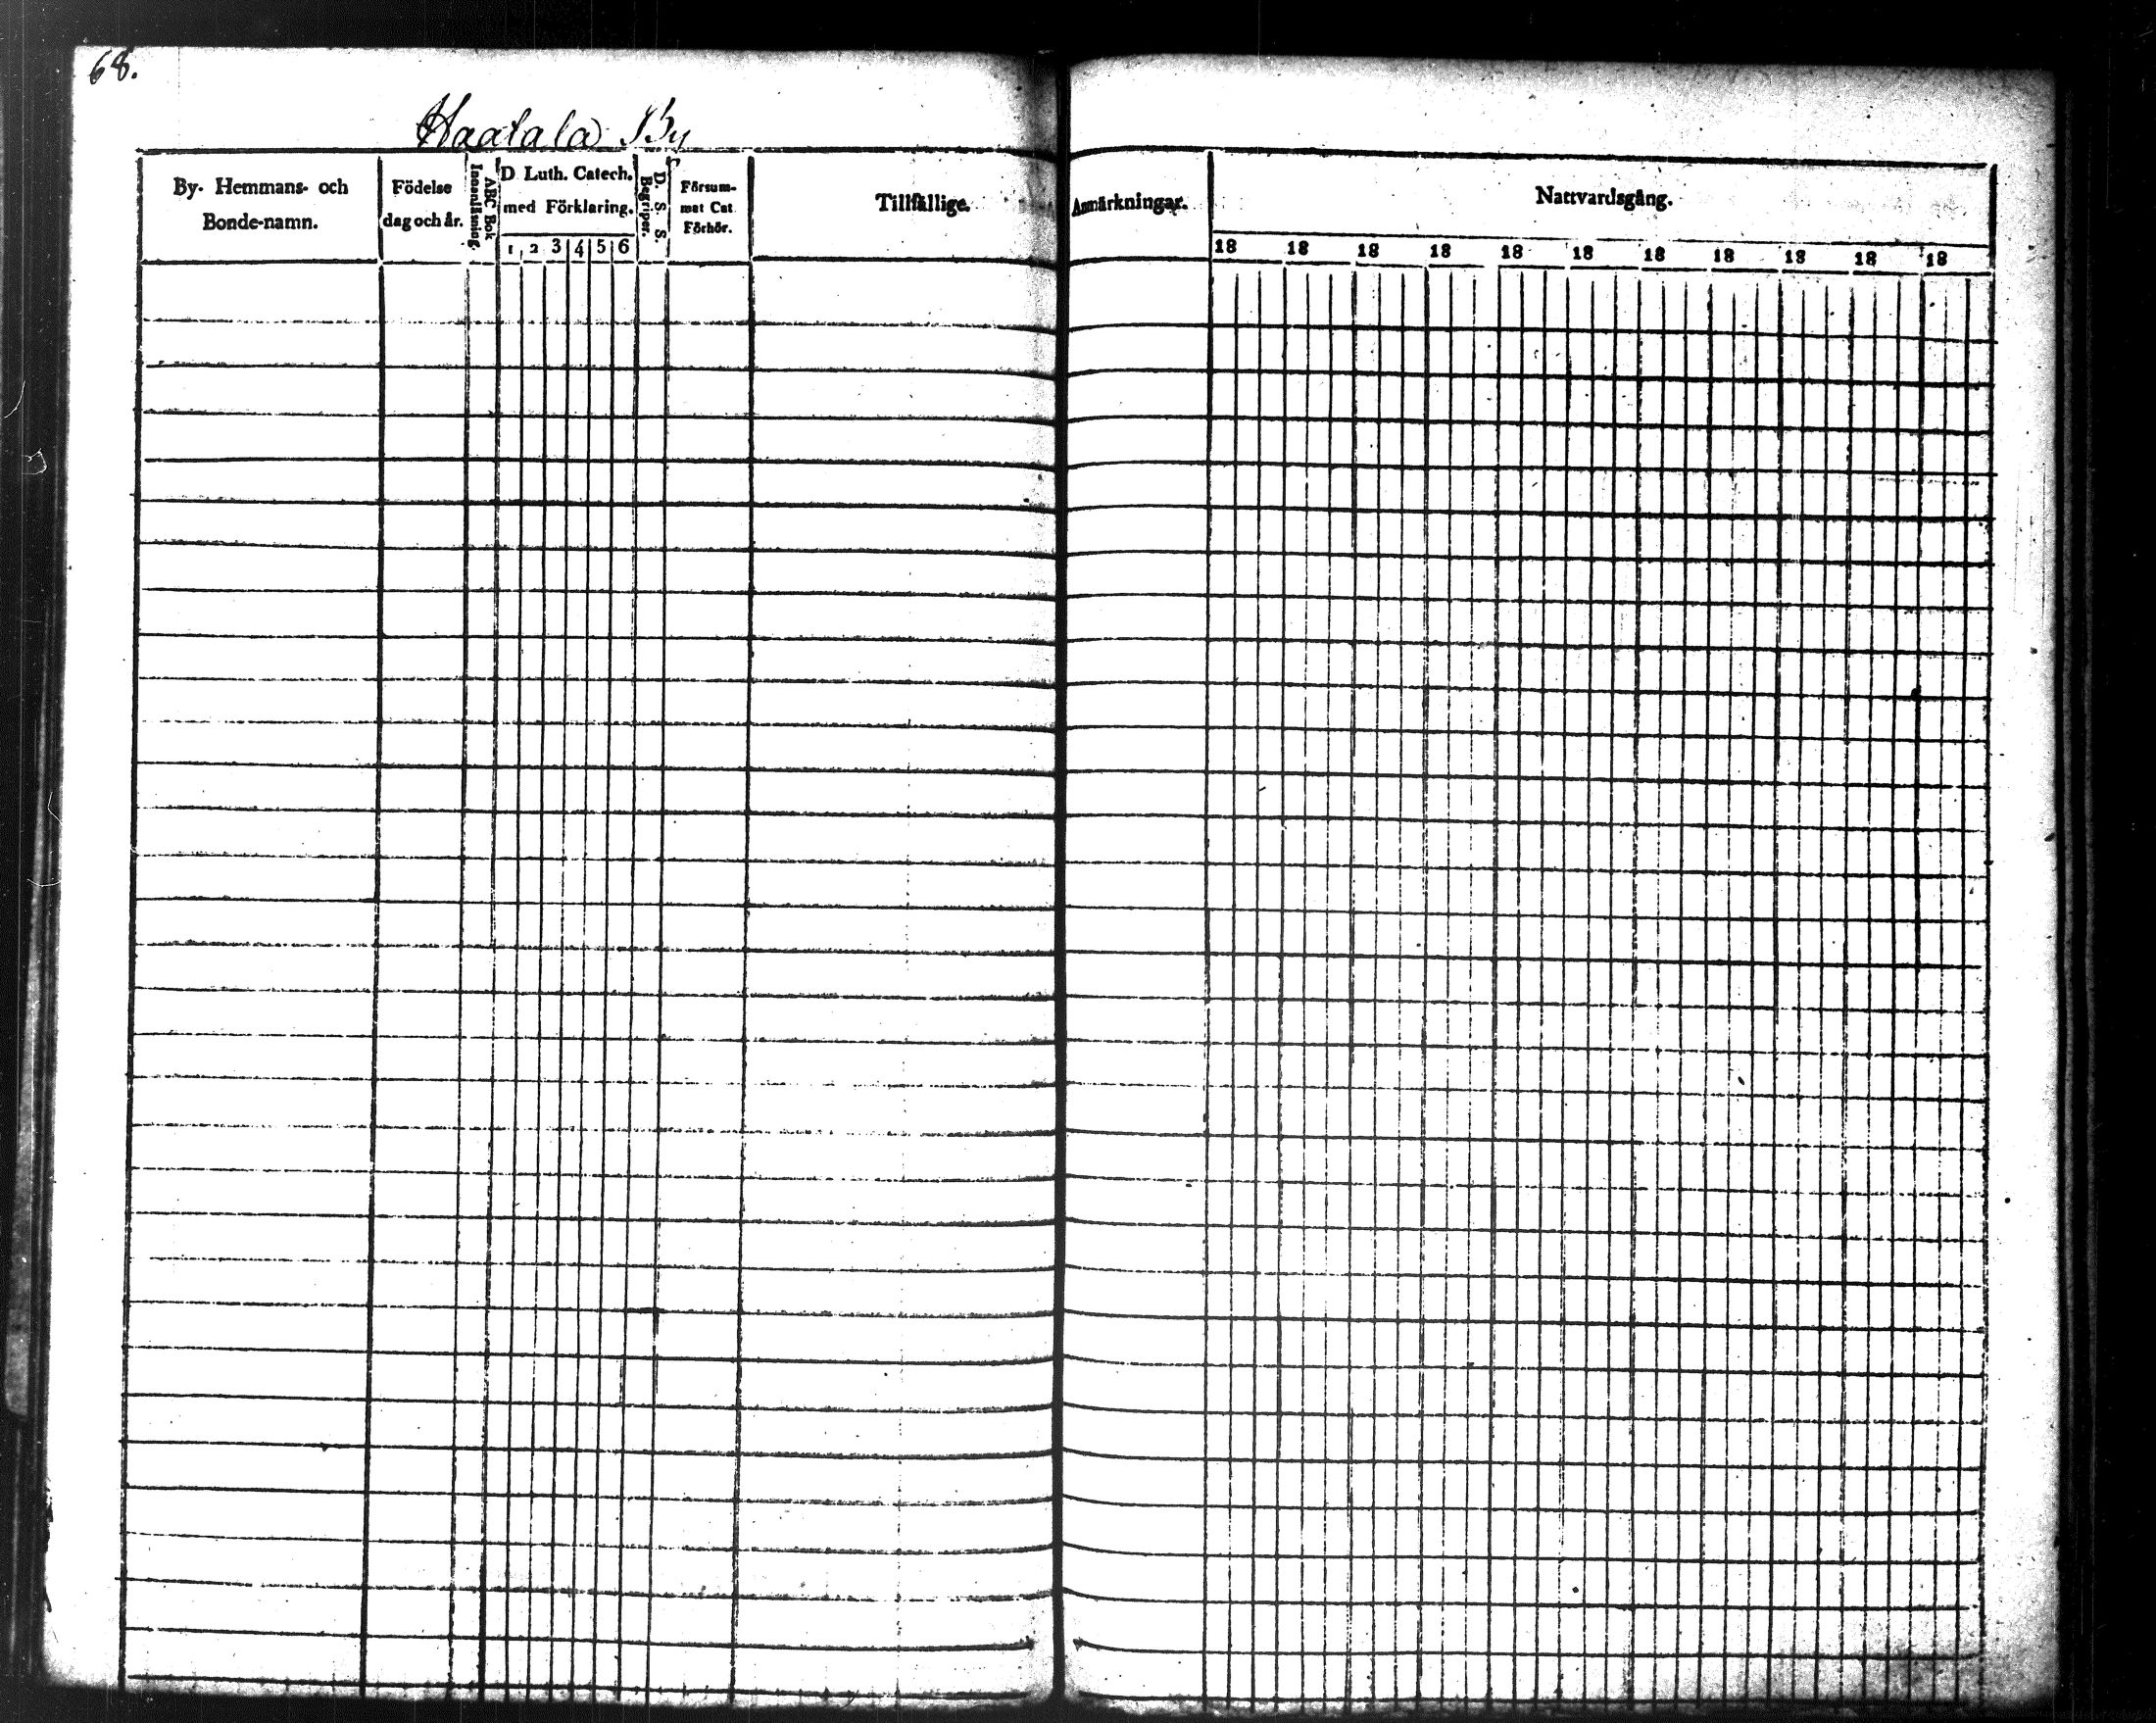 68.
Haatala By
By- Hemmans- och
Bonde-namn.
Födelse
dag och år.
ABC Bok
Innanläsning.
D Luth. Catech.
med Förklaring.
1 2 3 4 5 6
D. S. S.
Begriper.
Försum-
mat Cat
Förhör.
Tillfällige.
Anmärkningar.
Nattvardsgång.
18 18 18 18 18 18 18 18 18 18 18